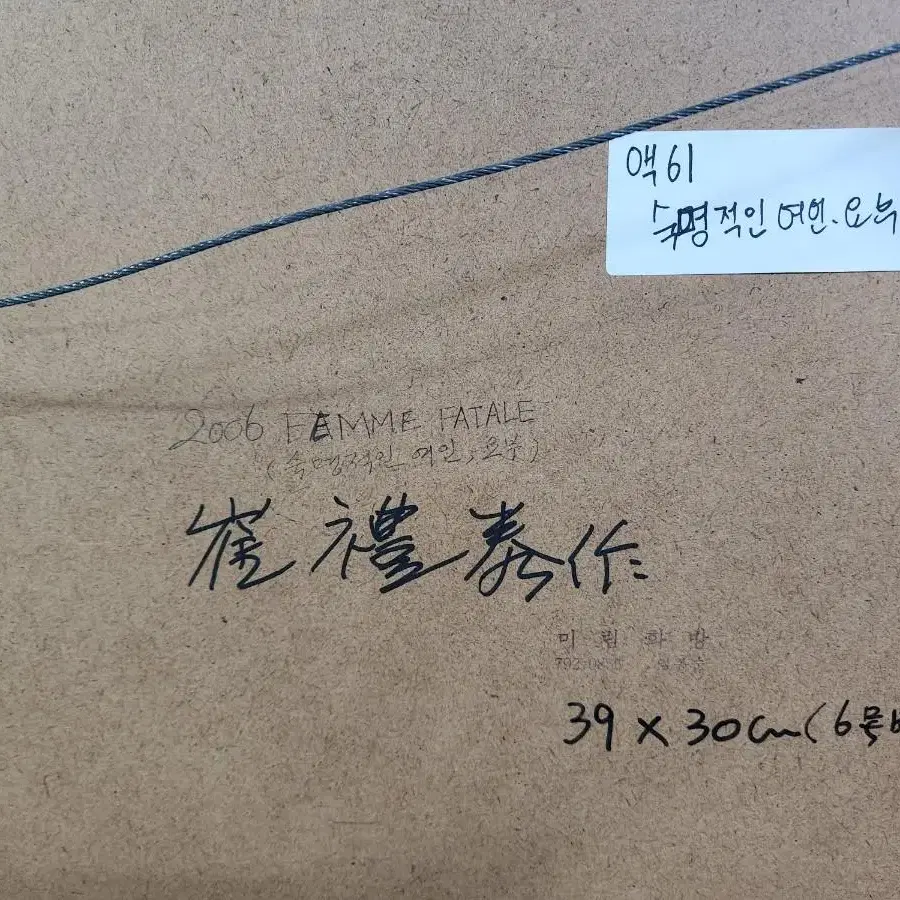 액61
숙명적인 여인.요부
2006 FEMME FATALE
(숙명적인 여인, 요부)
崔禮泰作
미림화방
39 x 30cm (6号